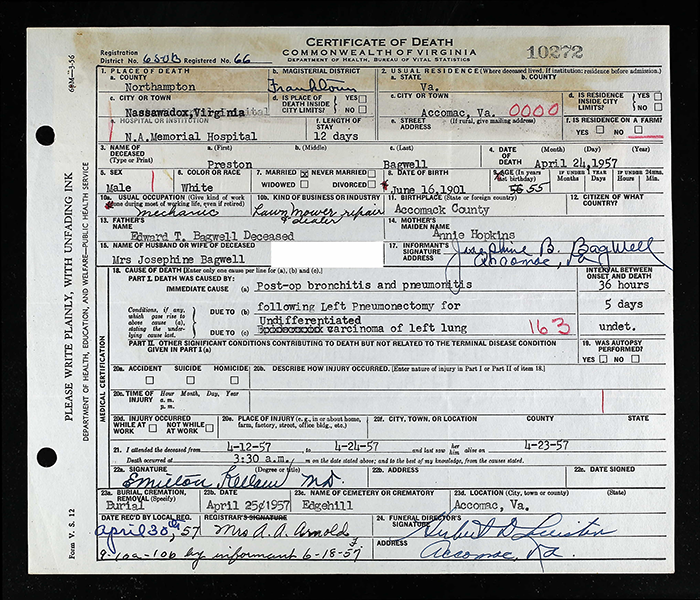 CERTIFICATE OF DEATH
COMMONWEALTH OF VIRGINIA
DEPARTMENT OF HEALTH, BUREAU OF VITAL STATISTICS
10272
Registration District No. 650B Registered No. 66
60M—3-56
1. PLACE OF DEATH
a. COUNTY
Northampton
b. MAGISTERIAL DISTRICT
2. USUAL RESIDENCE (Where deceased lived. If institution: residence before admission).
a. STATE
Va.
b. COUNTY
c. CITY OR TOWN
Nassawadox, Virginia
d. IS PLACE OF DEATH INSIDE CITY LIMITS? YES NO
c. CITY OR TOWN
Accomac, Va. 0000
d. IS RESIDENCE INSIDE CITY LIMITS? YES NO
HOSPITAL OR INSTITUTION
N.A.Memorial Hospital
f. LENGTH OF STAY
12 days
e. STREET ADDRESS (If rural, give mailing address)
f. IS RESIDENCE ON A FARM? YES NO
3. NAME OF DECEASED (Type or Print)
a. (First) b. (Middle) c. (Last)
Preston Bagwell
4. DATE OF DEATH (Month) (Day) (Year)
April 24, 1957
5. SEX
Male
6. COLOR OR RACE
White
7. MARRIED NEVER MARRIED
WIDOWED DIVORCED
8. DATE OF BIRTH
June 16, 1901
9. AGE (In years last birthday)
55
IF UNDER 1 YEAR Months Days
IF UNDER 24 HRS. Hours Min.
10a. USUAL OCCUPATION (Give kind of work done during most of working life, even if retired)
mechanic
10b. KIND OF BUSINESS OR INDUSTRY
Lawn Mower repair & dealer
11. BIRTHPLACE (State or foreign country)
Accomack County
12. CITIZEN OF WHAT COUNTRY?
13. FATHER'S NAME
Edward T. Bagwell Deceased
14. MOTHER'S MAIDEN NAME
Annie Hopkins
15. NAME OF HUSBAND OR WIFE OF DECEASED
Mrs Josephine Bagwell
17. INFORMANT'S SIGNATURE
Josephine B. Bagwell
ADDRESS
Accomac, Va
18. CAUSE OF DEATH (Enter only one cause per line for (a), (b) and (c).
INTERVAL BETWEEN ONSET AND DEATH
PART I. DEATH WAS CAUSED BY:
IMMEDIATE CAUSE (a) Post-op bronchitis and pneumonitis
36 hours
Conditions, if any, which gave rise to above cause (a), stating the underlying cause last.
DUE TO (b) following Left Pneumonectomy for
5 days
Undifferentiated
DUE TO (c) carcinoma of left lung 163
undet.
PART II. OTHER SIGNIFICANT CONDITIONS CONTRIBUTING TO DEATH BUT NOT RELATED TO THE TERMINAL DISEASE CONDITION GIVEN IN PART I (a)
19. WAS AUTOPSY PERFORMED? YES NO
20a. ACCIDENT SUICIDE HOMICIDE
20b. DESCRIBE HOW INJURY OCCURRED. (Enter nature of injury in Part I or Part II of item 18.)
20c. TIME OF INJURY Hour Month, Day, Year
a. m.
p. m.
20d. INJURY OCCURRED
WHILE AT WORK NOT WHILE AT WORK
20e. PLACE OF INJURY (e.g., in or about home, farm, factory, street, office bldg., etc.)
20f. CITY, TOWN, OR LOCATION COUNTY STATE
21. I attended the deceased from 4-12-57 to 4-24-57 and last saw her him alive on 4-23-57
Death occurred at 3:30 a.m. m on the date stated above; and to the best of my knowledge, from the causes stated.
22a. SIGNATURE (Degree or title)
Kellam MD
22b. ADDRESS
22c. DATE SIGNED
23a. BURIAL, CREMATION, REMOVAL (Specify)
Burial
23b. DATE
April 25, 1957
23c. NAME OF CEMETERY OR CREMATORY
Edgehill
23d. LOCATION (City, town or county) (State)
Accomac, Va.
DATE REC'D BY LOCAL REG.
April 30th, 57
REGISTRAR'S SIGNATURE
Mrs A. A. Arnold
24. FUNERAL DIRECTOR'S SIGNATURE
ADDRESS
Accomac, Va.
9-10a-10b by informant 6-18-57
PLEASE WRITE PLAINLY, WITH UNFADING INK
DEPARTMENT OF HEALTH, EDUCATION, AND WELFARE—PUBLIC HEALTH SERVICE
MEDICAL CERTIFICATION
Form V. S. 12